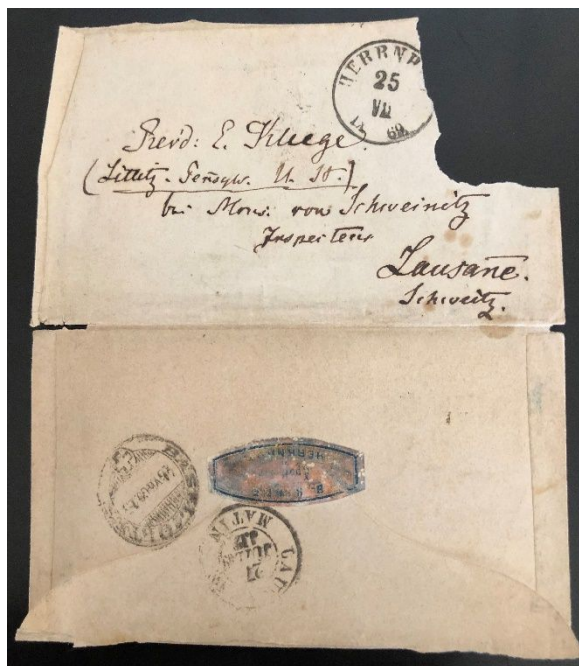 HERRNH
25
VII
IX 69
Rev'd: E. Kluege.
(Littitz. Pensylv. U. St.)
bei Mons. von Schweinitz
Inspecteur
Lausanne.
Schweitz.
HERRNH
MATIN
JUIL
27
LAU